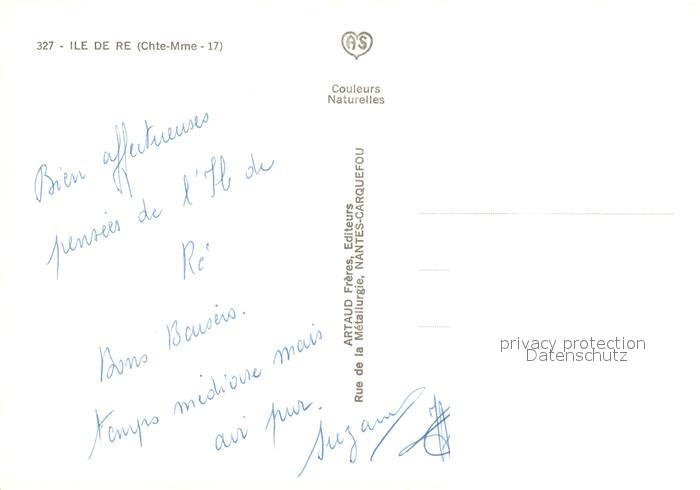 327 - ILE DE RE (Chte-Mme - 17)
AS
Couleurs
Naturelles
Bien affectueuses
pensées de l'Ile de
Ré
Bons Baisers.
temps médiocre mais
air pur.
Suzanne
ARTAUD Frères, Editeurs
Rue de la Métallurgie, NANTES-CARQUEFOU
privacy protection
Datenschutz